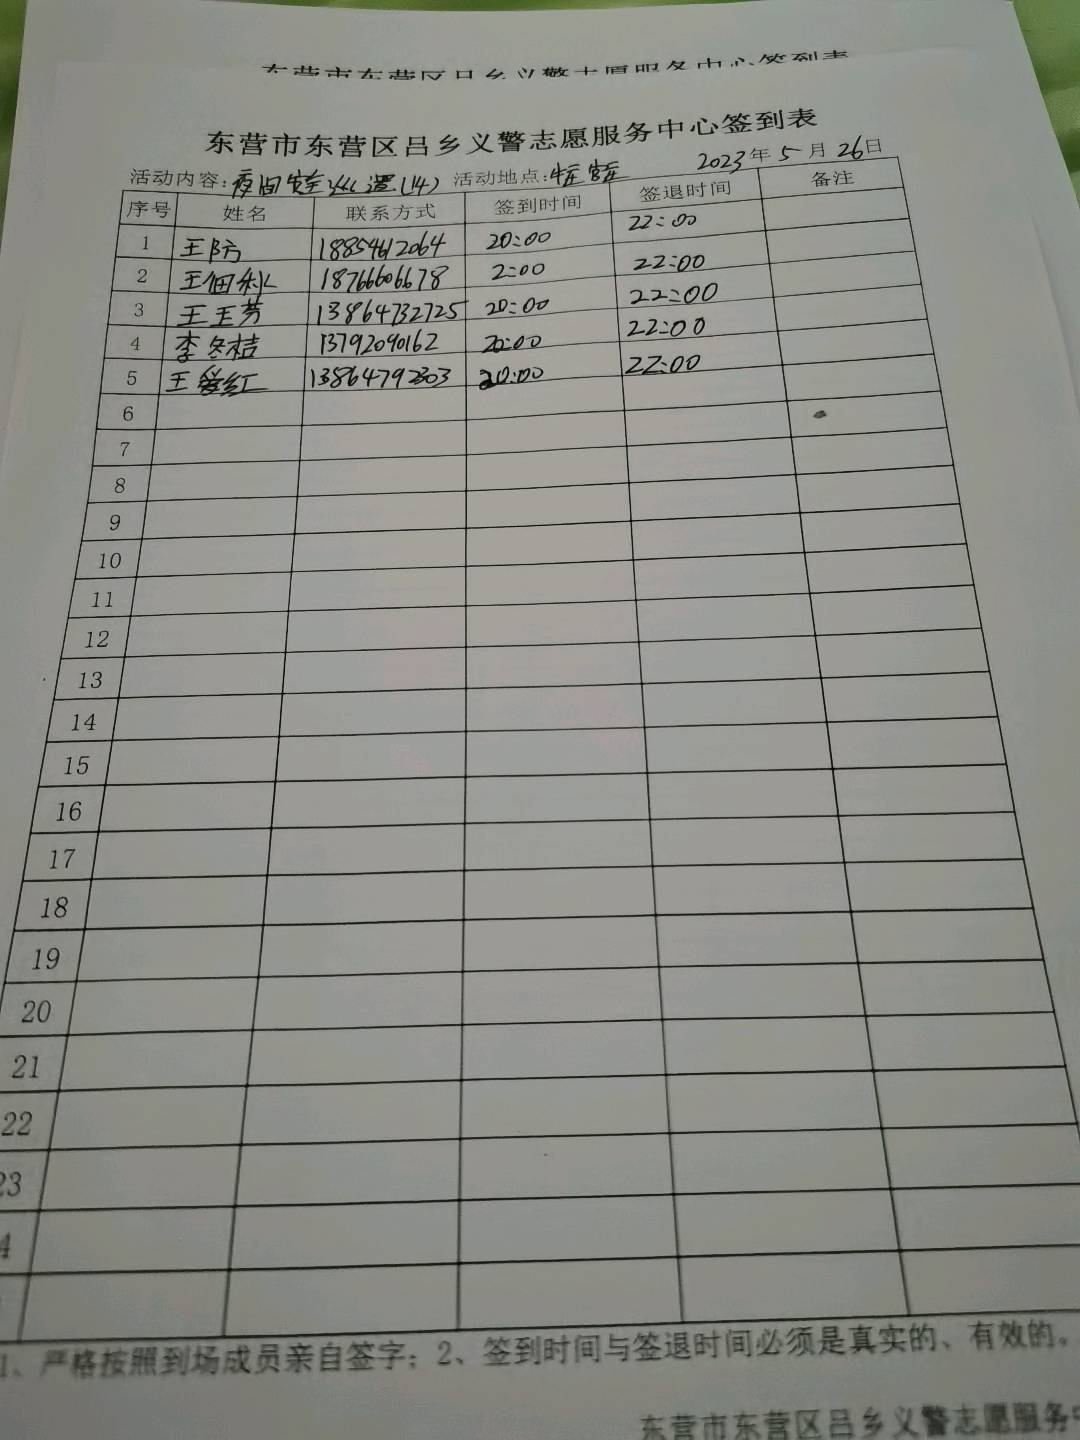 东营市东营区吕乡义警志愿服务中心签到表
东营市东营区吕乡义警志愿服务中心签到表
2023年5月26日
活动内容:夜间 (14) 活动地点:
序号 姓名 联系方式 签到时间 签退时间 备注
1 王防 18854612064 20:00 22:00
2 王佃 18766606678 2:00 22:00
3 王玉芳 13864732725 20:00 22:00
4 李冬桔 13792090162 20:00 22:00
5 王爱红 13864792303 20:00 22:00
6
7
8
9
10
11
12
13
14
15
16
17
18
19
20
21
22
23
4
1、严格按照到场成员亲自签字；2、签到时间与签退时间必须是真实的、有效的。
东营市东营区吕乡义警志愿服务中